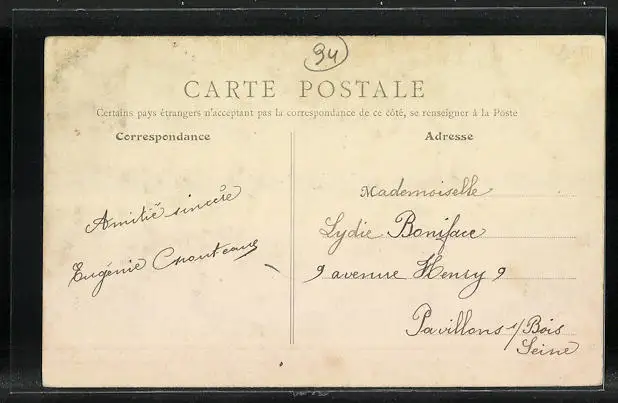 94
CARTE POSTALE
Certains pays étrangers n'acceptant pas la correspondance de ce côté, se renseigner à la Poste
Correspondance
Amitié sincère
Eugénie
Adresse
Mademoiselle
Lydie Boniface
9 avenue Henry 9
Pavillons s/ Bois
Seine